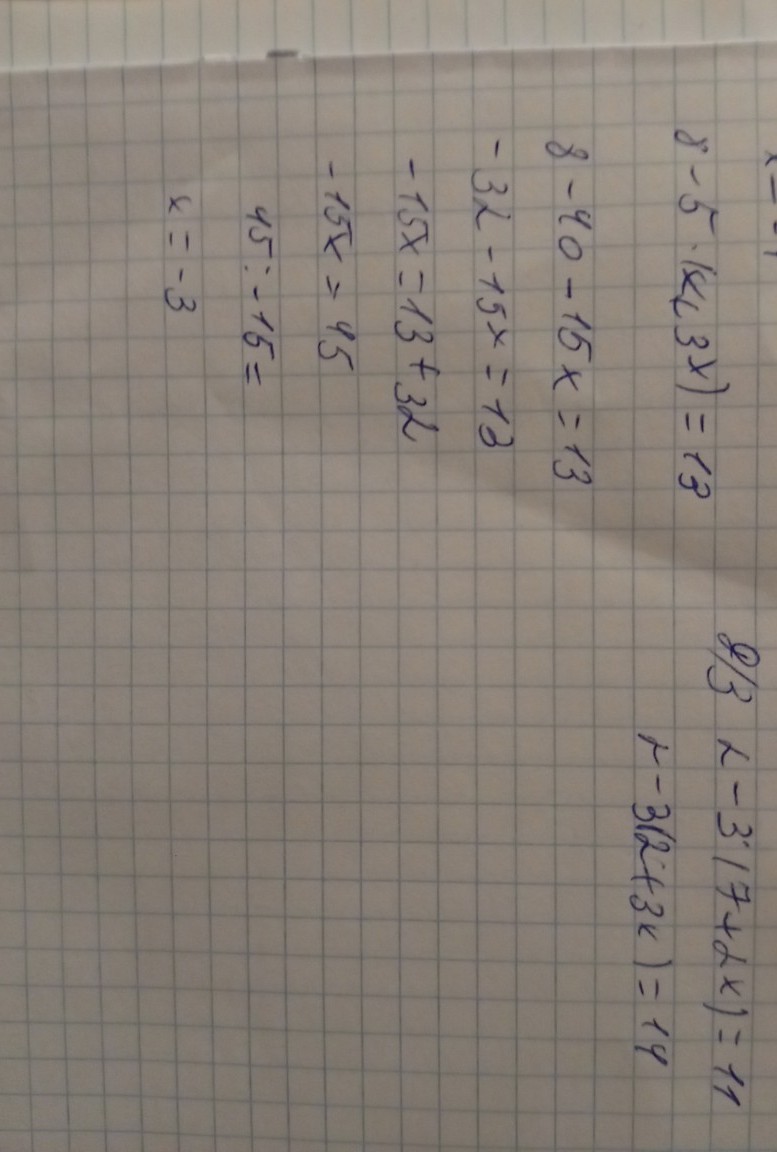 8 - 5 · (8 + 3x) = 13
8 - 40 - 15x = 13
-32 - 15x = 13
-15x = 13 + 32
-15x = 45
45 : -15 =
x = -3
Д/З 2 - 3 · (7 + 2x) = 11
2 - 3(2 + 3x) = 14